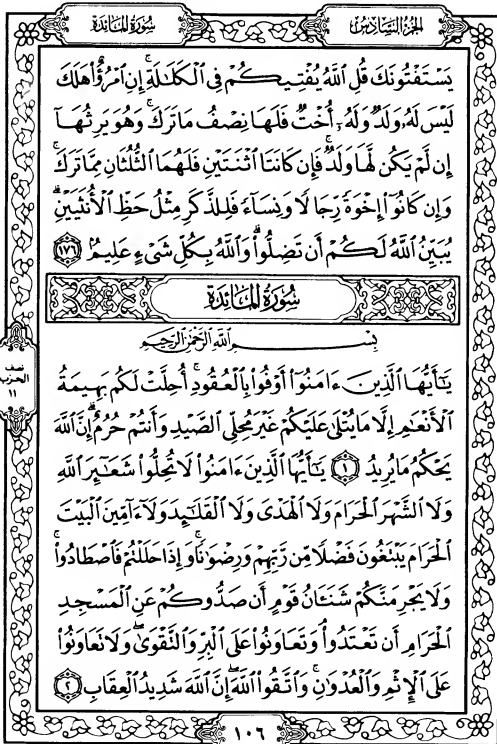 الجزء السادس
سورة المائدة
يَسْتَفْتُونَكَ قُلِ ٱللَّهُ يُفْتِيكُمْ فِى ٱلْكَلَـٰلَةِ ۚ إِنِ ٱمْرُؤٌا۟ هَلَكَ
لَيْسَ لَهُۥ وَلَدٌ وَلَهُۥٓ أُخْتٌ فَلَهَا نِصْفُ مَا تَرَكَ ۚ وَهُوَ يَرِثُهَآ
إِن لَّمْ يَكُن لَّهَا وَلَدٌ ۚ فَإِن كَانَتَا ٱثْنَتَيْنِ فَلَهُمَا ٱلثُّلُثَانِ مِمَّا تَرَكَ ۚ
وَإِن كَانُوٓا۟ إِخْوَةً رِّجَالًا وَنِسَآءً فَلِلذَّكَرِ مِثْلُ حَظِّ ٱلْأُنثَيَيْنِ ۗ
يُبَيِّنُ ٱللَّهُ لَكُمْ أَن تَضِلُّوا۟ ۗ وَٱللَّهُ بِكُلِّ شَىْءٍ عَلِيمٌۢ ١٧٦
سورة المائدة
بِسْمِ ٱللَّهِ ٱلرَّحْمَـٰنِ ٱلرَّحِيمِ
يَـٰٓأَيُّهَا ٱلَّذِينَ ءَامَنُوٓا۟ أَوْفُوا۟ بِٱلْعُقُودِ ۚ أُحِلَّتْ لَكُم بَهِيمَةُ
ٱلْأَنْعَـٰمِ إِلَّا مَا يُتْلَىٰ عَلَيْكُمْ غَيْرَ مُحِلِّى ٱلصَّيْدِ وَأَنتُمْ حُرُمٌ ۗ إِنَّ ٱللَّهَ
يَحْكُمُ مَا يُرِيدُ ١ يَـٰٓأَيُّهَا ٱلَّذِينَ ءَامَنُوا۟ لَا تُحِلُّوا۟ شَعَـٰٓئِرَ ٱللَّهِ
وَلَا ٱلشَّهْرَ ٱلْحَرَامَ وَلَا ٱلْهَدْىَ وَلَا ٱلْقَلَـٰٓئِدَ وَلَآ ءَآمِّينَ ٱلْبَيْتَ
ٱلْحَرَامَ يَبْتَغُونَ فَضْلًا مِّن رَّبِّهِمْ وَرِضْوَٰنًا ۚ وَإِذَا حَلَلْتُمْ فَٱصْطَادُوا۟ ۚ
وَلَا يَجْرِمَنَّكُمْ شَنَـَٔانُ قَوْمٍ أَن صَدُّوكُمْ عَنِ ٱلْمَسْجِدِ
ٱلْحَرَامِ أَن تَعْتَدُوا۟ ۘ وَتَعَاوَنُوا۟ عَلَى ٱلْبِرِّ وَٱلتَّقْوَىٰ ۖ وَلَا تَعَاوَنُوا۟
عَلَى ٱلْإِثْمِ وَٱلْعُدْوَٰنِ ۚ وَٱتَّقُوا۟ ٱللَّهَ ۖ إِنَّ ٱللَّهَ شَدِيدُ ٱلْعِقَابِ ٢
نصف
الحزب
١١
١٠٦